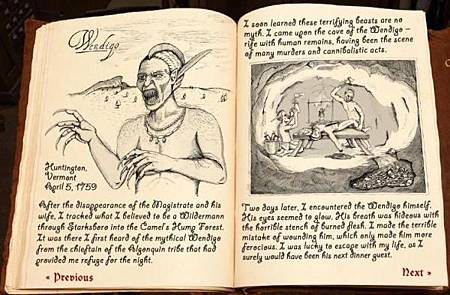 Wendigo
Huntington,
Vermont
April 5, 1759
After the disappearance of the Magistrate and his
wife, I tracked what I believed to be a Wildermann
through Starksboro into the Camel's Hump Forest.
It was there I first heard of the mythical Wendigo
from the chieftain of the Algonquin tribe that had
provided me refuge for the night.
« Previous
I soon learned these terrifying beasts are no
myth. I came upon the cave of the Wendigo –
rife with human remains, having been the scene
of many murders and cannibalistic acts.
Two days later, I encountered the Wendigo himself.
His eyes seemed to glow. His breath was hideous with
the horrible stench of burned flesh. I made the terrible
mistake of wounding him, which only made him more
ferocious. I was lucky to escape with my life, as I
surely would have been his next dinner guest.
Next »